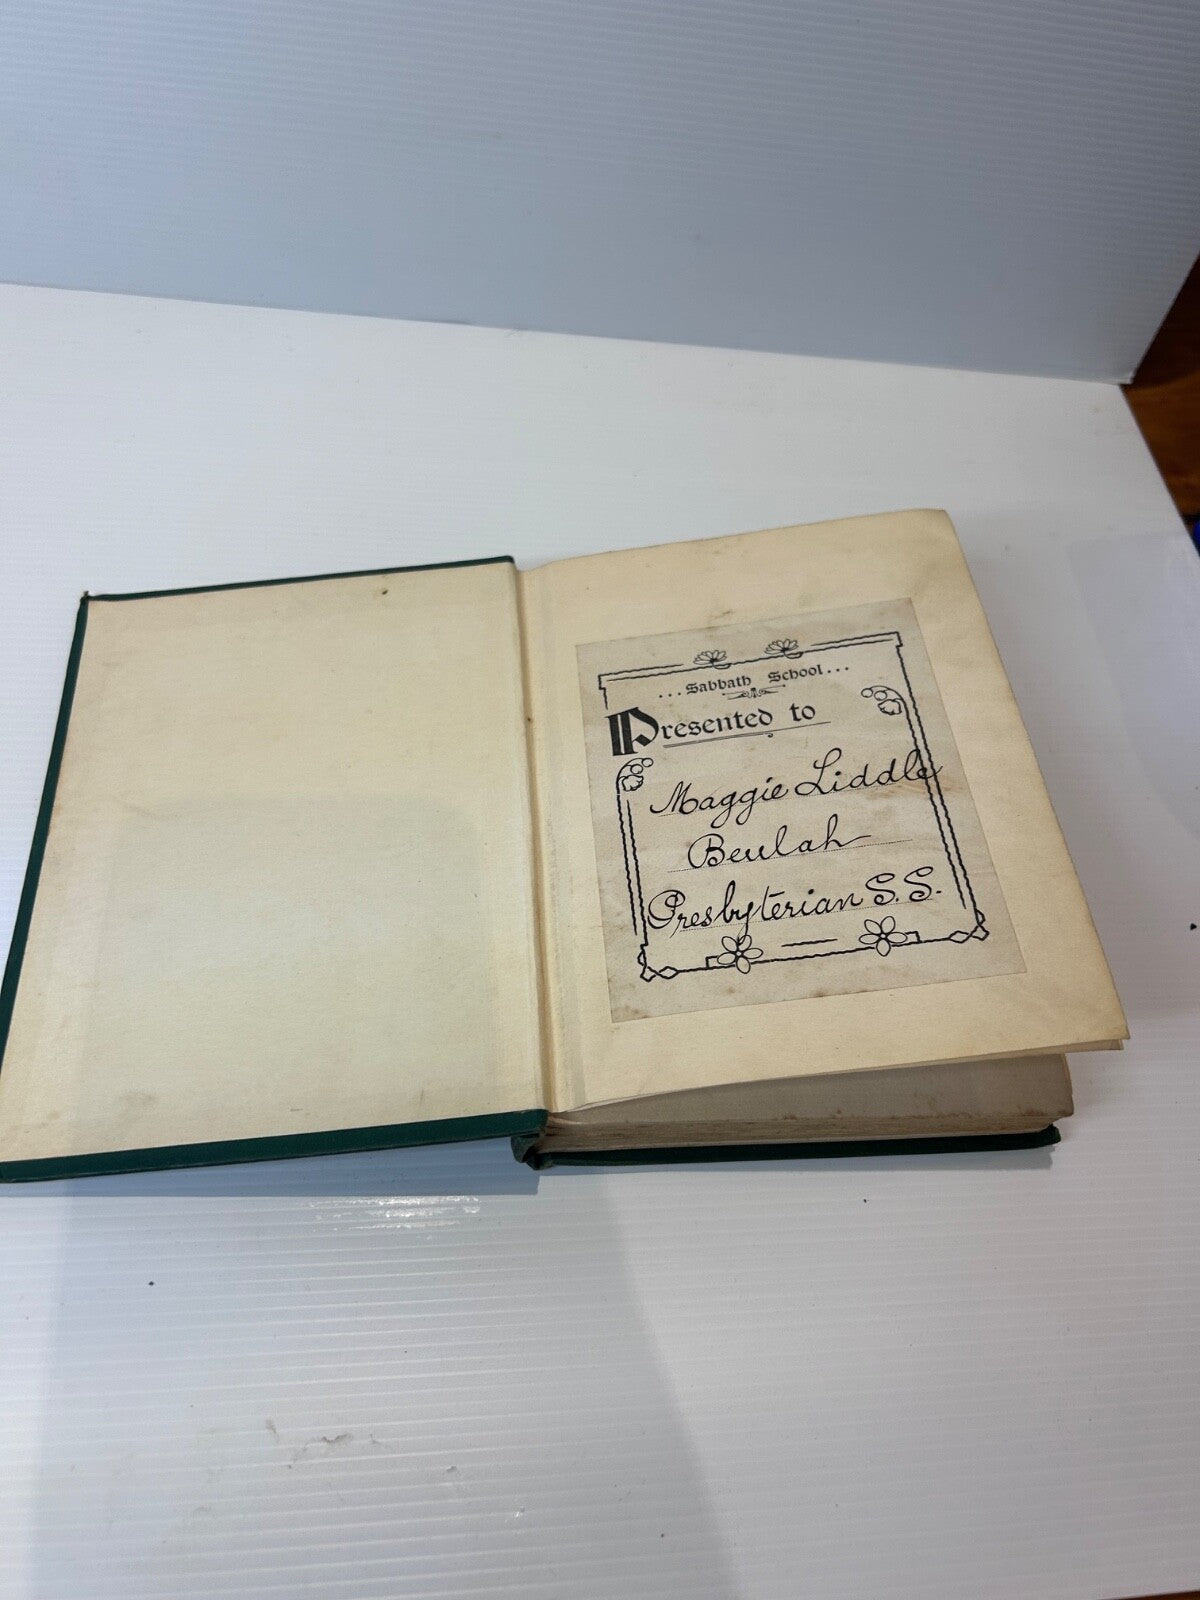 ...Sabbath School...
Presented to
Maggie Liddle
Beulah
Presbyterian S.S.